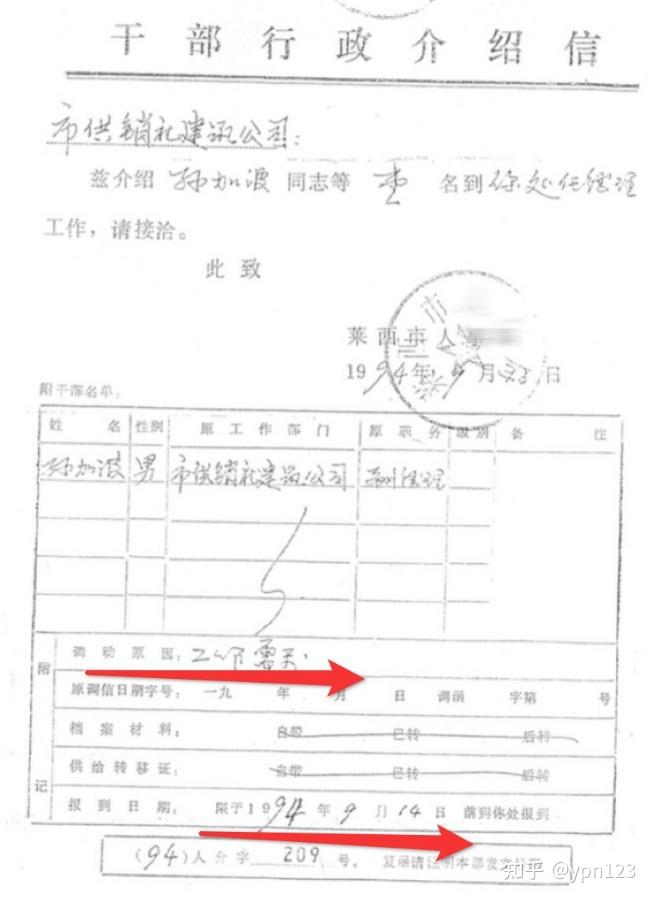 干部行政介绍信
市供销社建筑公司：
兹介绍 孙加波 同志等 壹 名到你处任经理
工作，请接洽。
此致
莱西市人
1994年9月 日
附干部名单：
姓名 性别 原工作部门 原职务 级别 备注
孙加波 男 市供销社建筑公司 副经理
附记
调动原因：工作需要
原调信日期字号： 一九 年 月 日 调函 字第 号
档案材料： 自带 已转 后转
供给转移证： 自带 已转 后转
报到日期： 限于1994年9月14日前到你处报到
(94)人介字 209 号， 复函请注明本部发文号
知乎 @ypn123